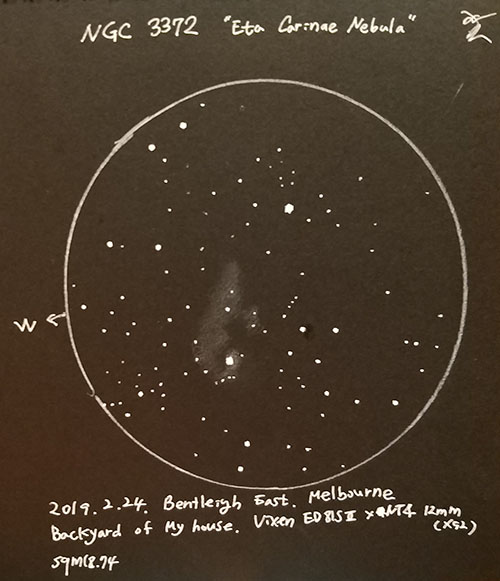 NGC 3372 "Eta Carinae Nebula"
W
2019. 2.24. Bentleigh East. Melbourne
Backyard of My house. Vixen ED81SII 12mm
(x52)
SQM18.74